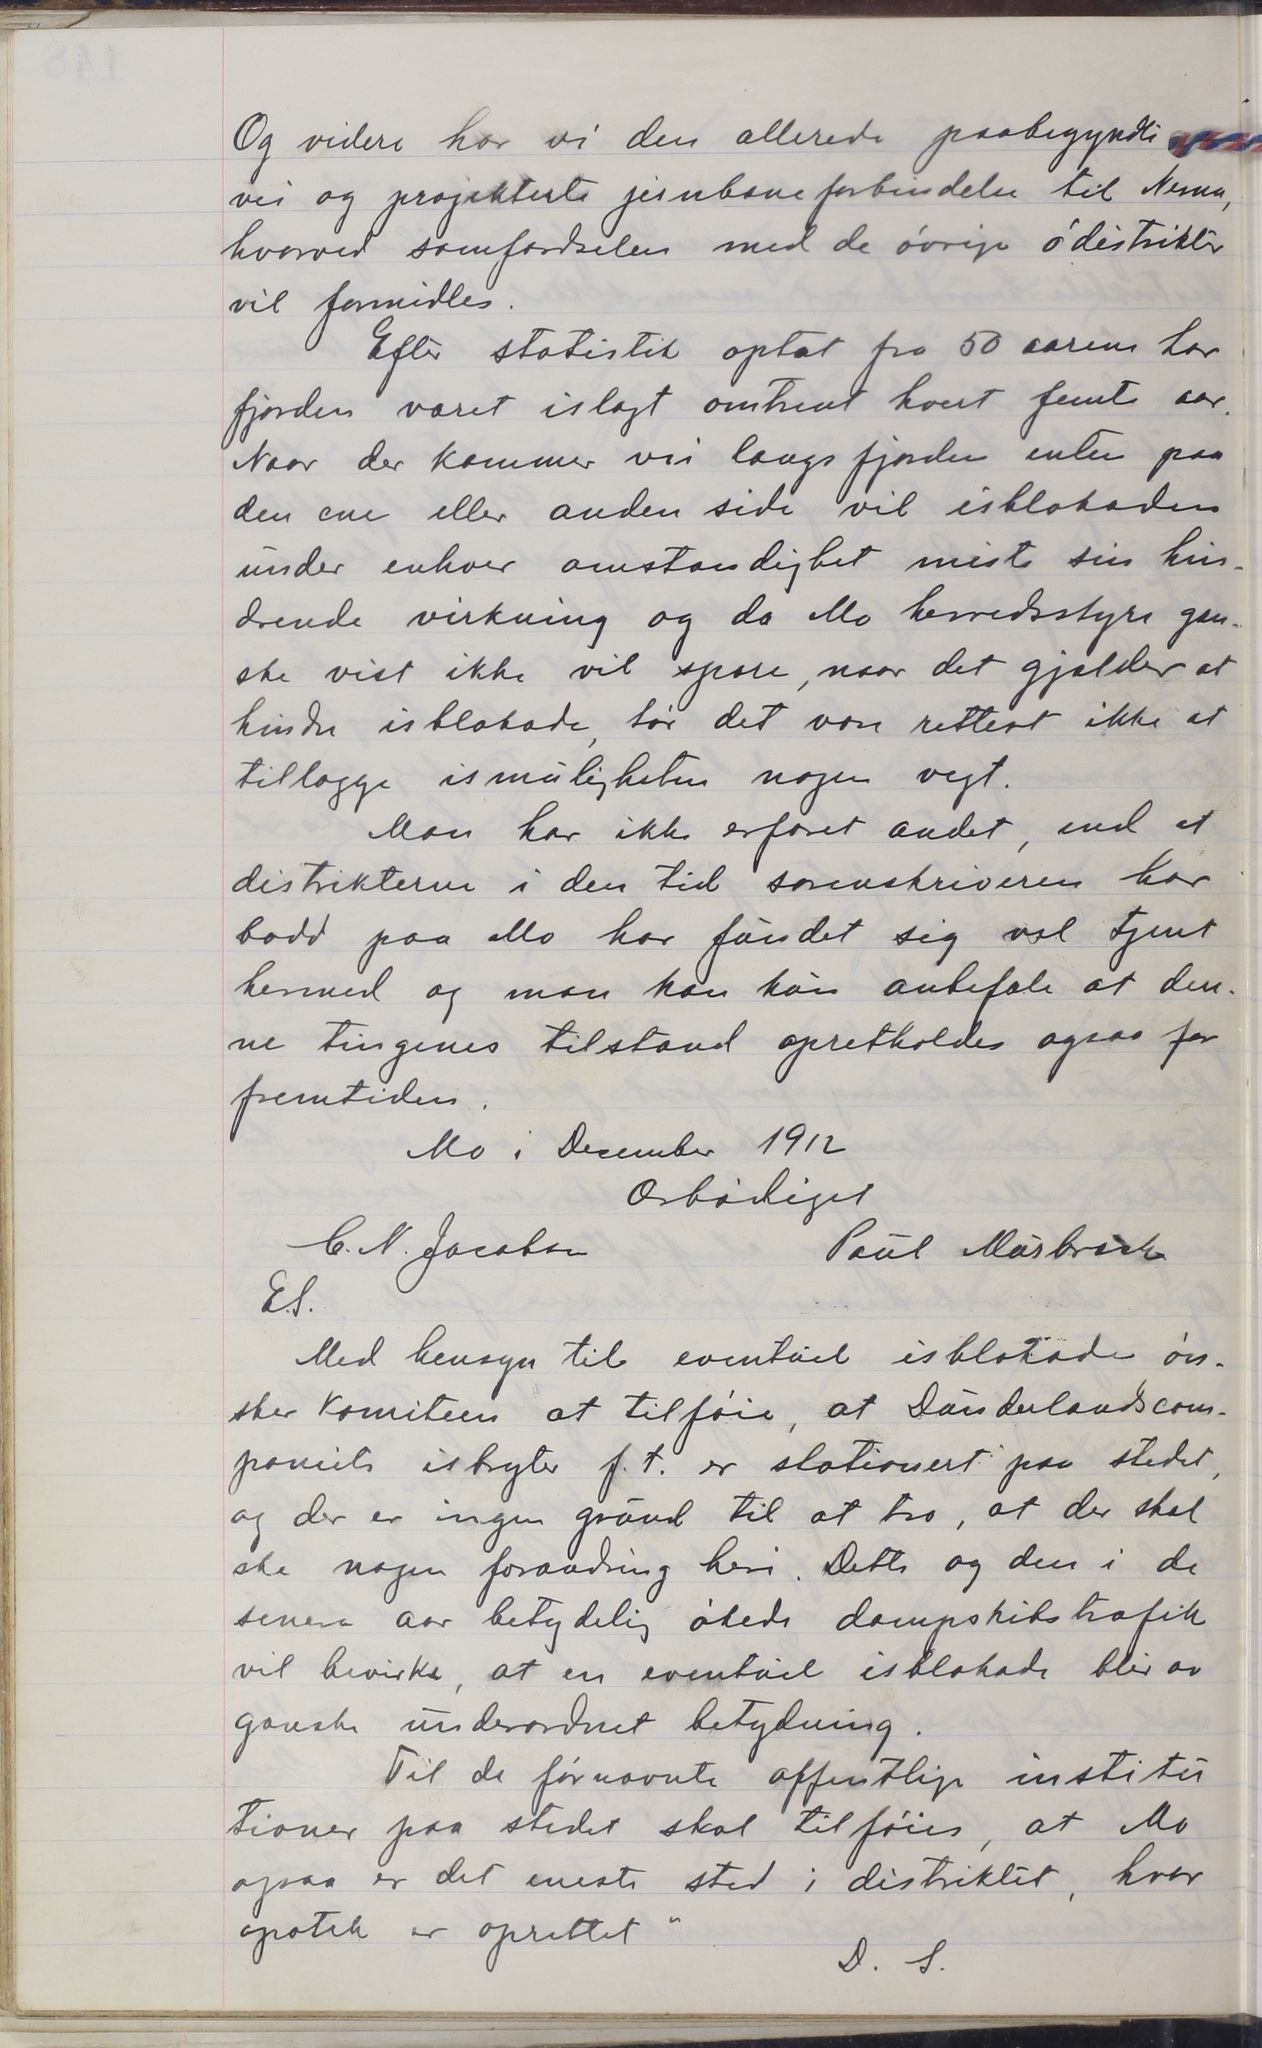 Og videre har vi den allerede paabegyndte
vei og projekterte jernbaneforbindelse til Nesna,
hvorved samferdselen med de óvrige ódistrikter
vil formidles.
Efter statistik optat fra 50 aarene har
fjorden været islagt omtrent hvert femte aar.
Naar der kommer vei langs fjorden enten paa
den ene eller anden side vil isblokaden
under enhver omstændighet miste sin hin-
drende virkning og da Mo herredsstyre gan-
ske vist ikke vil spare, naar det gjælder at
hindre isblokade, tór det være rettest ikke at
tillægge ismuligheten nogen vegt.
Man har ikke erfaret andet, end at
distrikterne i den tid sorenskriveren har
bodd paa Mo har fundet sig vel tjent
hermed og man kan kun anbefale at den-
ne tingenes tilstand opretholdes ogsaa for
fremtiden.
Mo i December 1912
Ærbódigst
C. N. Jacobsen Paul Musbræck
E.S.
Med hensyn til eventuel isblokade ón-
sker Komiteen at tilfóie, at Dunderlandscom-
paniets isbryter f.t. er stationert paa stedet,
og der er ingen grund til at tro, at der skal
ske nogen forandring heri. Dette og den i de
senere aar betydelig ókede dampskibstrafik
vil bevirke, at en eventuel isblokade blir av
ganske underordnet betydning.
Til de fórnævnte offentlige institu
tioner paa stedet skal tilfóies, at Mo
ogsaa er det eneste sted i distriktet, hvor
apotek er oprettet "
D. S.
148